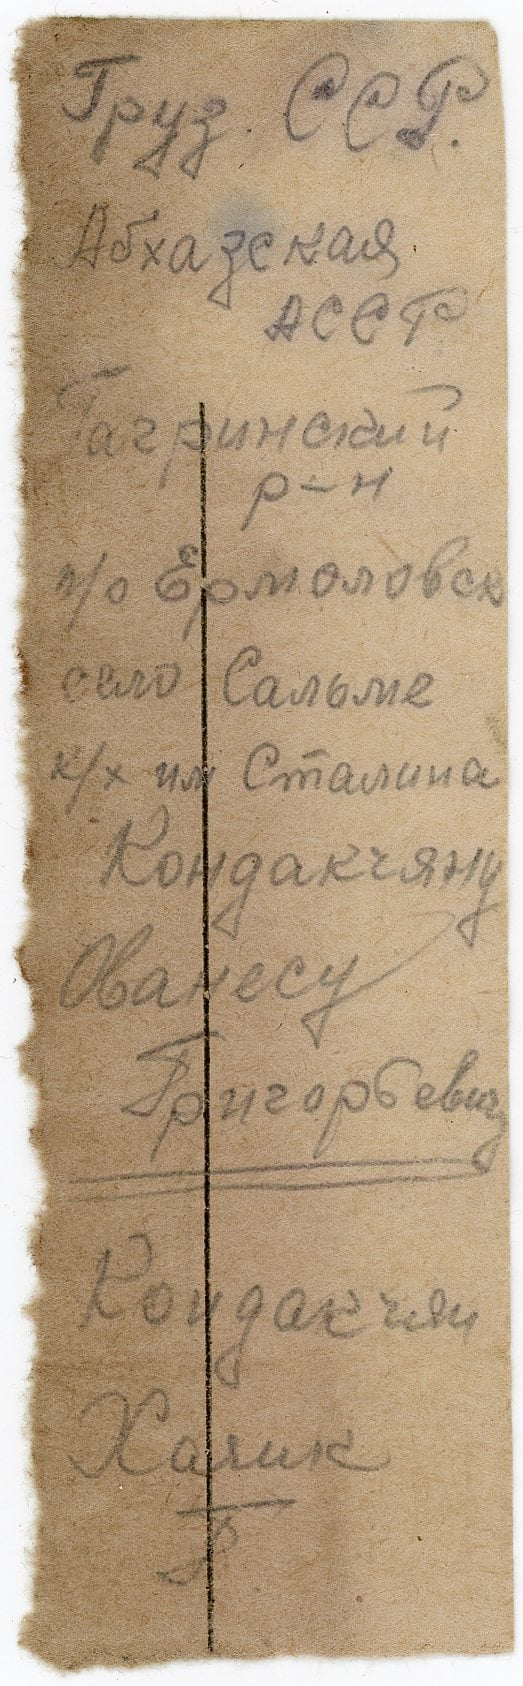 Груз. ССР.
Абхазская
АССР
Гагринский
р-н
п/о Ермоловск
село Сальме
к/х им Сталина
Кондакчяну
Ованесу
Григорьевич
Кондакчян
Халик